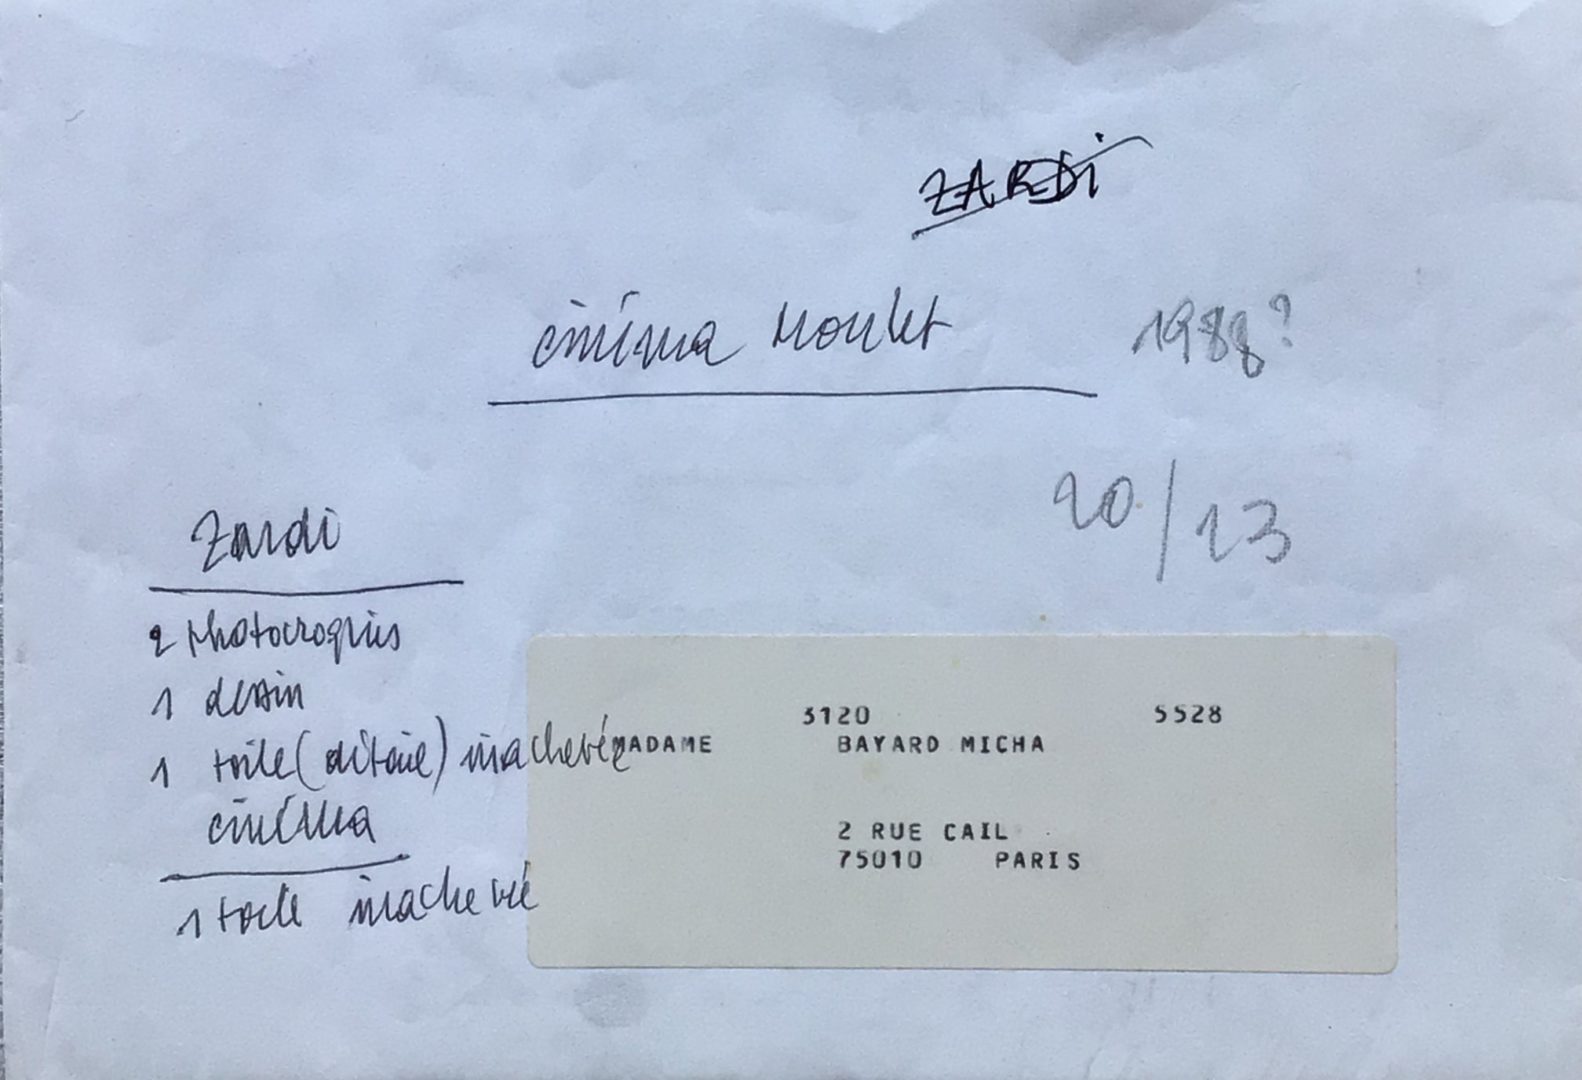 ZARDi
cinéma Moulet 1988?
20/23
Zardi
2 photocroquis
1 dessin
1 toile (détail) inachevée
cinéma
1 toile inachevée
3120 5528
MADAME BAYARD MICHA
2 RUE CAIL
75010 PARIS